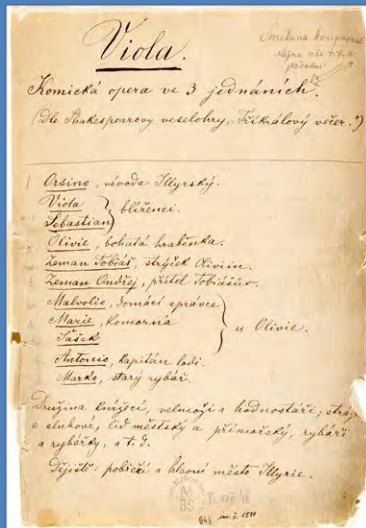 Viola.
Smetana
Komická opera ve 3 jednáních.
(Dle Shakespearovy veselohry „Tříkrálový večer.")
Orsino, vévoda Illyrský.
Viola
Sebastian } blíženci.
Olivie, bohatá hraběnka.
Zeman Tobiáš, strýček Oliviin.
Zeman Ondřej, přítel Tobiášův.
Malvolio, domácí správce
Marie, komorná
Šašek
} u Olivie.
Antonio, kapitán lodi.
Marko, starý rybář.
Družina knížecí, velmoži a hodnostáři; stráž
a sluhové, lid městský a přímořský, rybáři
a rybářky, a t. d.
Dějiště: pobřeží a hlavní město Illyrie.